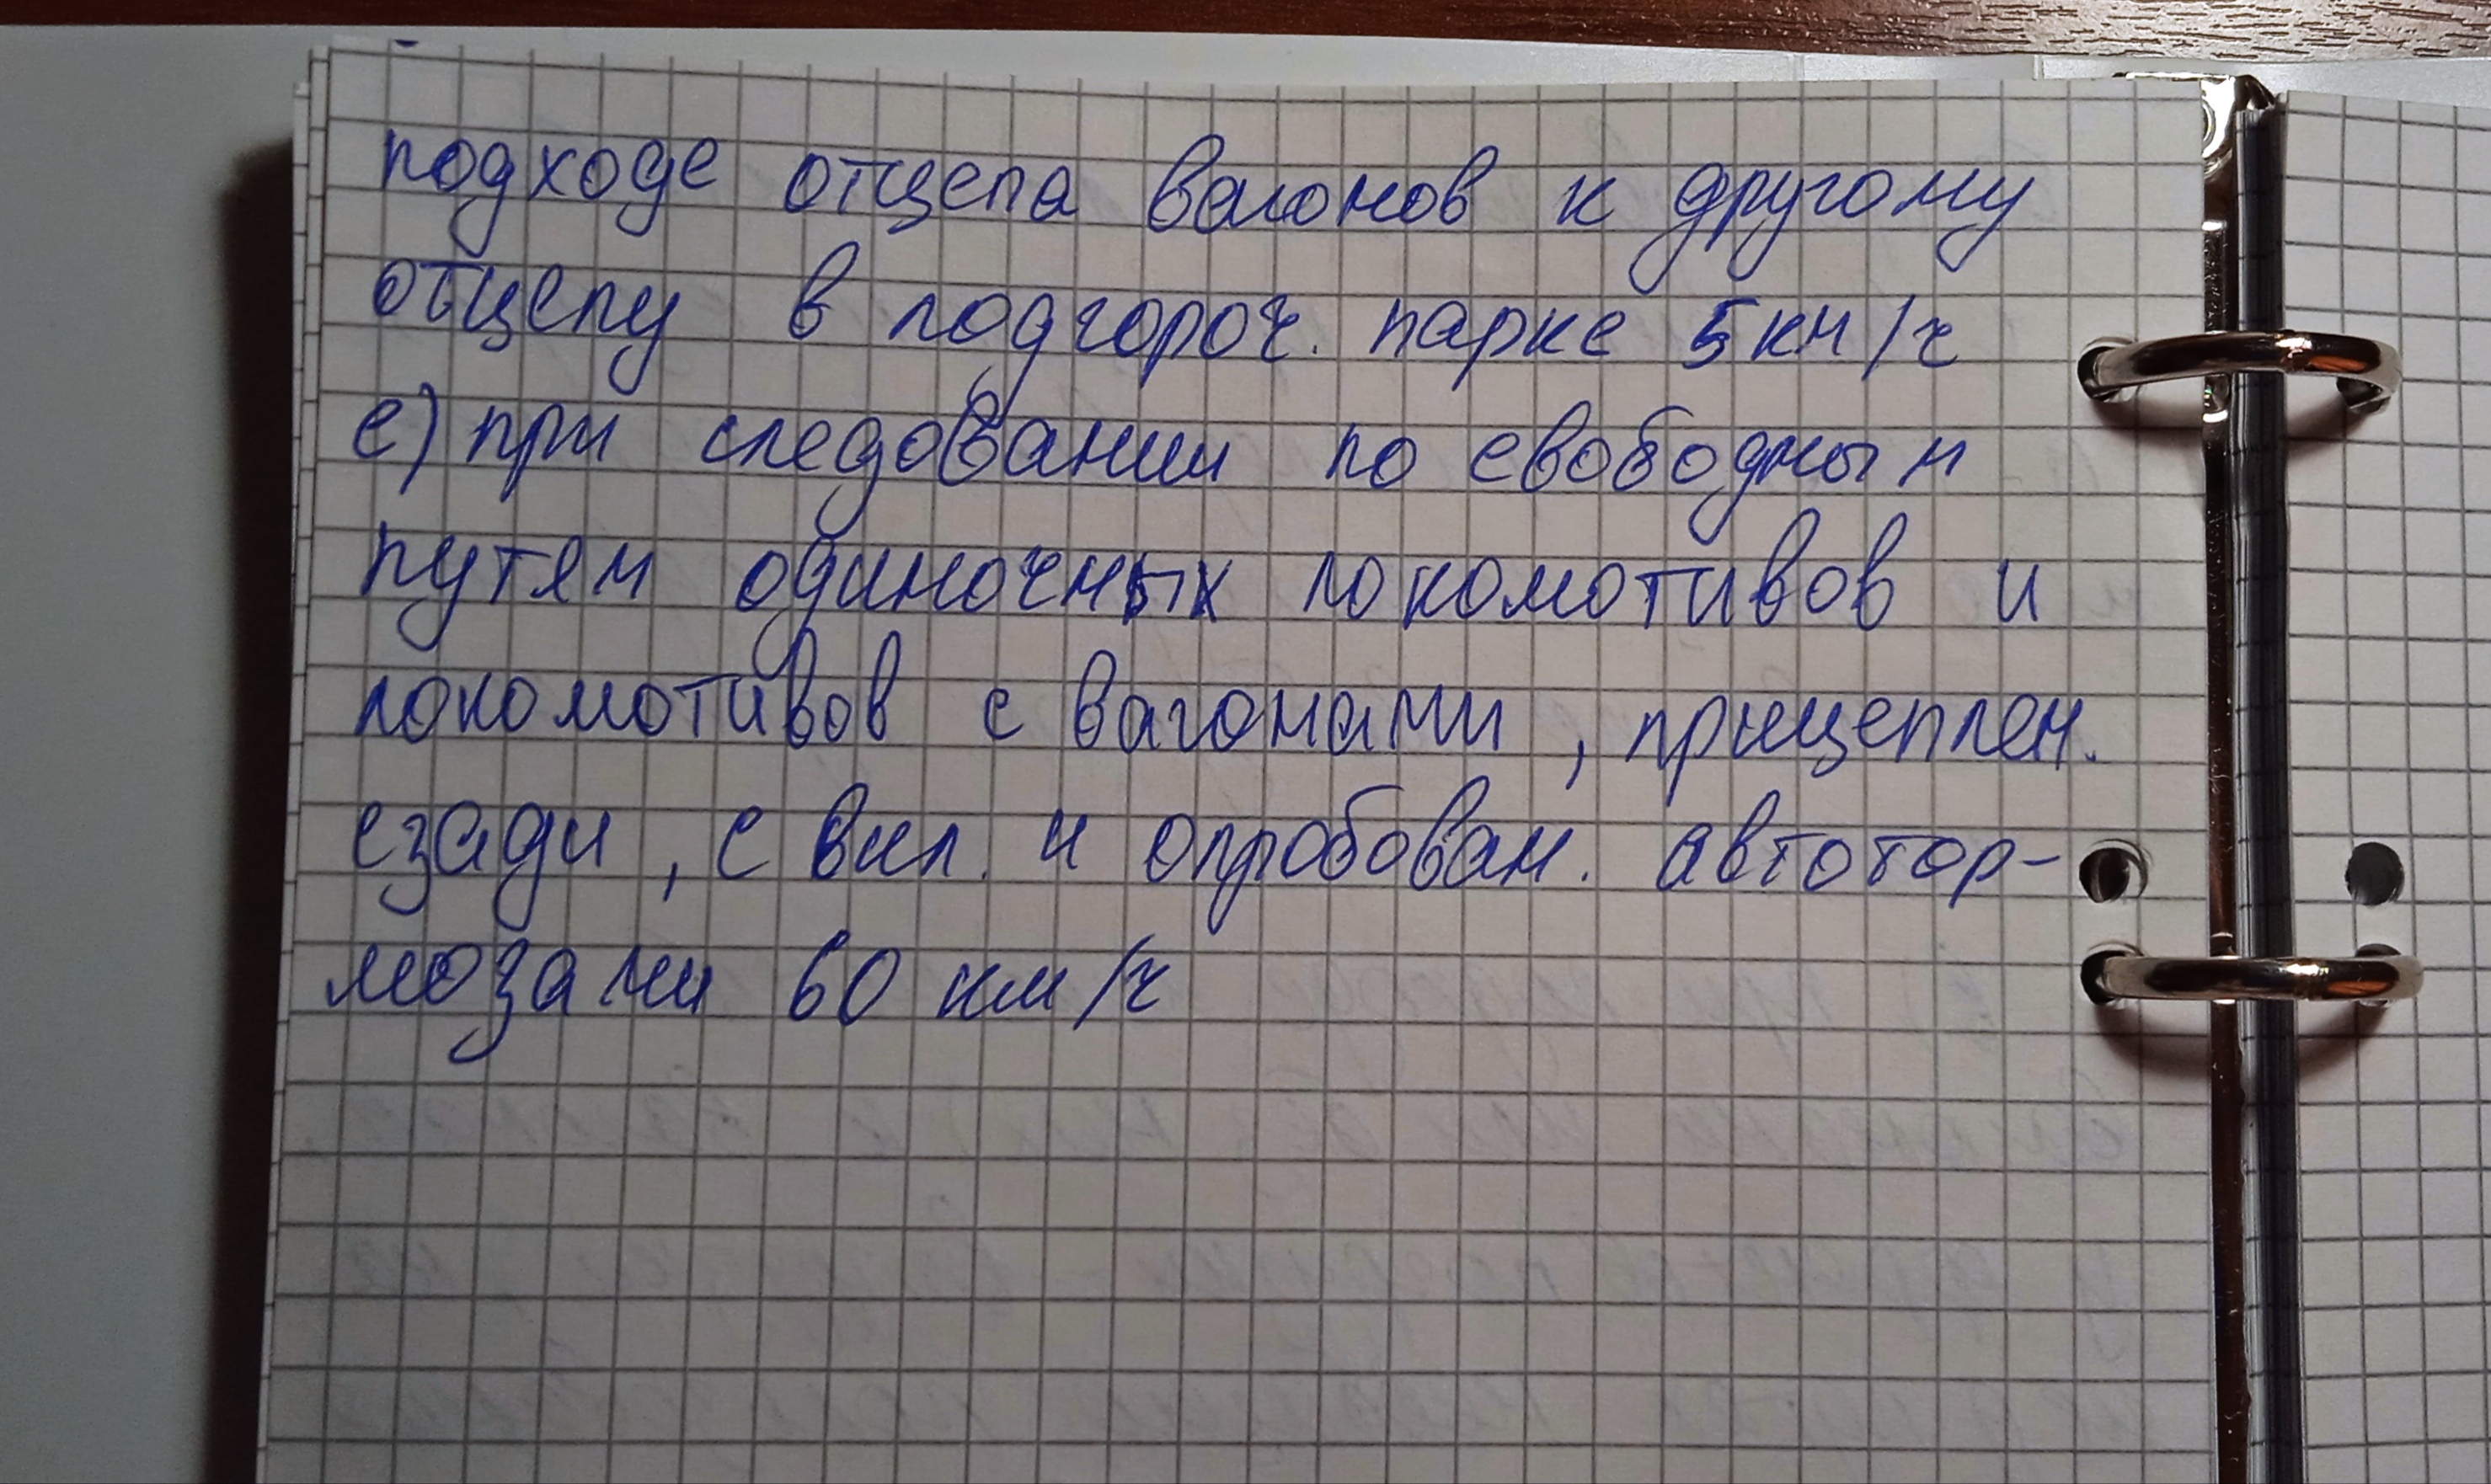 подходе отцепа вагонов к другому
отцепу в подгороч. парке 5 км/ч
е) при следовании по свободным
путям одиночных локомотивов и
локомотивов с вагонами, прицеплен.
сзади, с вкл. и опробован. автотор-
мозами 60 км/ч